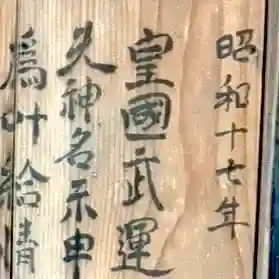 昭和十七年
皇國武運
天神名示申
為叶給情